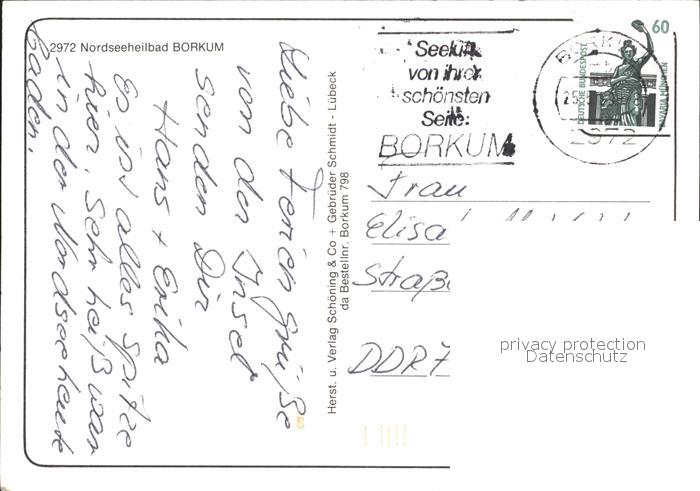 2972 Nordseeheilbad BORKUM
Liebe Feriengrüße
von der Insel
senden Dir
Hans + Erika
Es ist alles Spitze
hier. Sehr heiß war
in der Nordsee heute
baden.
Herst. u. Verlag Schöning & Co + Gebrüder Schmidt - Lübeck
da Bestellnr. Borkum 798
Seeluft
von ihrer
schönsten
Seite:
BORKUM
BORKUM
2972
60
DEUTSCHE BUNDESPOST
BAVARIA MÜNCHEN
Frau
Elisa
Straße
DDR 7
privacy protection
Datenschutz